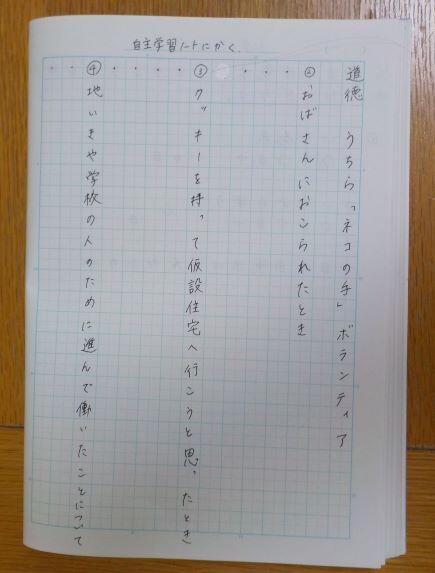 自主学習ノートにかく。
道徳　うちら「ネコの手」ボランティア
②おばさんにおこられたとき
③クッキーを持って仮設住宅へ行こうと思ったとき
④地いきや学校の人のために進んで働いたことについて